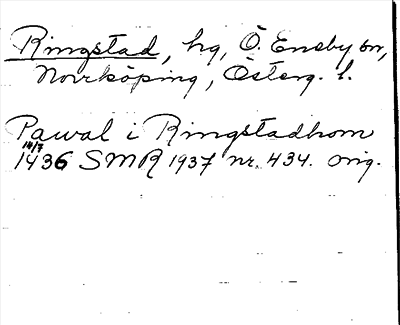 Ringstad, hg, Ö. Eneby sn,
Norrköping, Österg. l.
Pawal i Ringstadhom
14/7
1436 SMR 1937 nr. 434. orig.